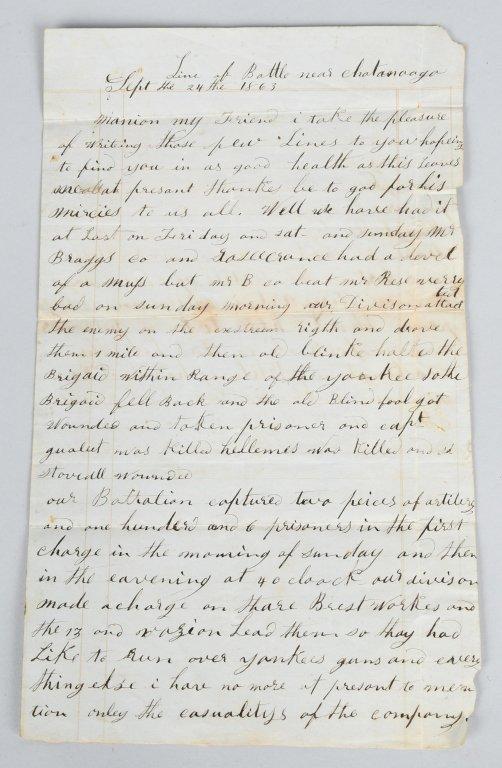 Line of Battle near Chatanooga
Sept the 24 the 1863
Manion my Friend i take the pleasure
of writing those few Lines to you hopeing
to find you in as good health as this leaves
me at presant thankes be to god for his
mircies to us all. Well we have had it
at Last on Friday and sat and sunday Mr
Braggs co and had a devel
of a muss but mr B co beat mr Rese verry
bad on sunday morning our Divison attact
the enemy on the exstream rigth and drove
them 1 mile and then old blinke halted the
Brigaid within Range of the yankees so the
Brigaid fell Back and the old Blind fool got
wounded and taken prisoner and capt
was killed hellemes was killed and
stovall wounded
our Batralion captured two peices of artilery
and one hunderd and 6 prisoners in the first
charge in the morning of sunday and then
in the eavening at 4 o cloock our divison
made a charge on thare Brest workes and
the 13 and Lead them so thay had
Like to run over yankees guns and every
thing else i have no more at present to men
tion onley the casualitys of the company.